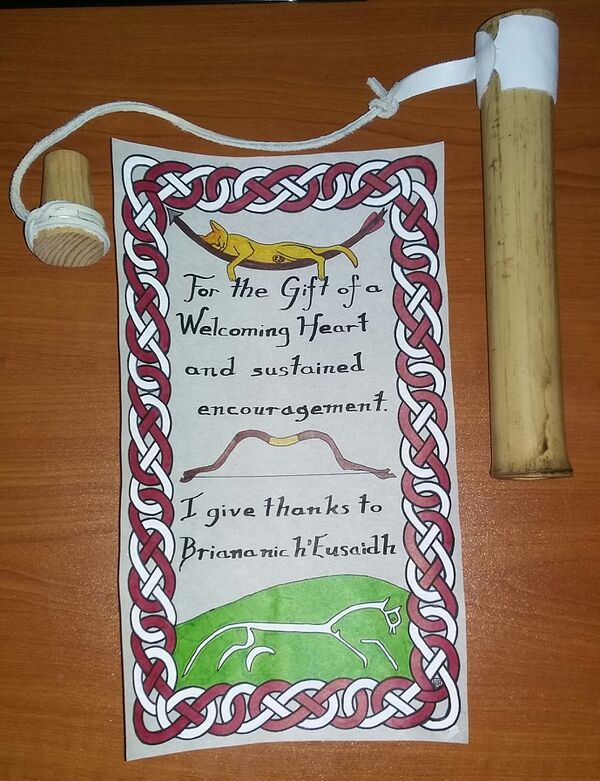 For the Gift of a
Welcoming Heart
and sustained
encouragement.
I give thanks to
Briana nic h'Eusaidh